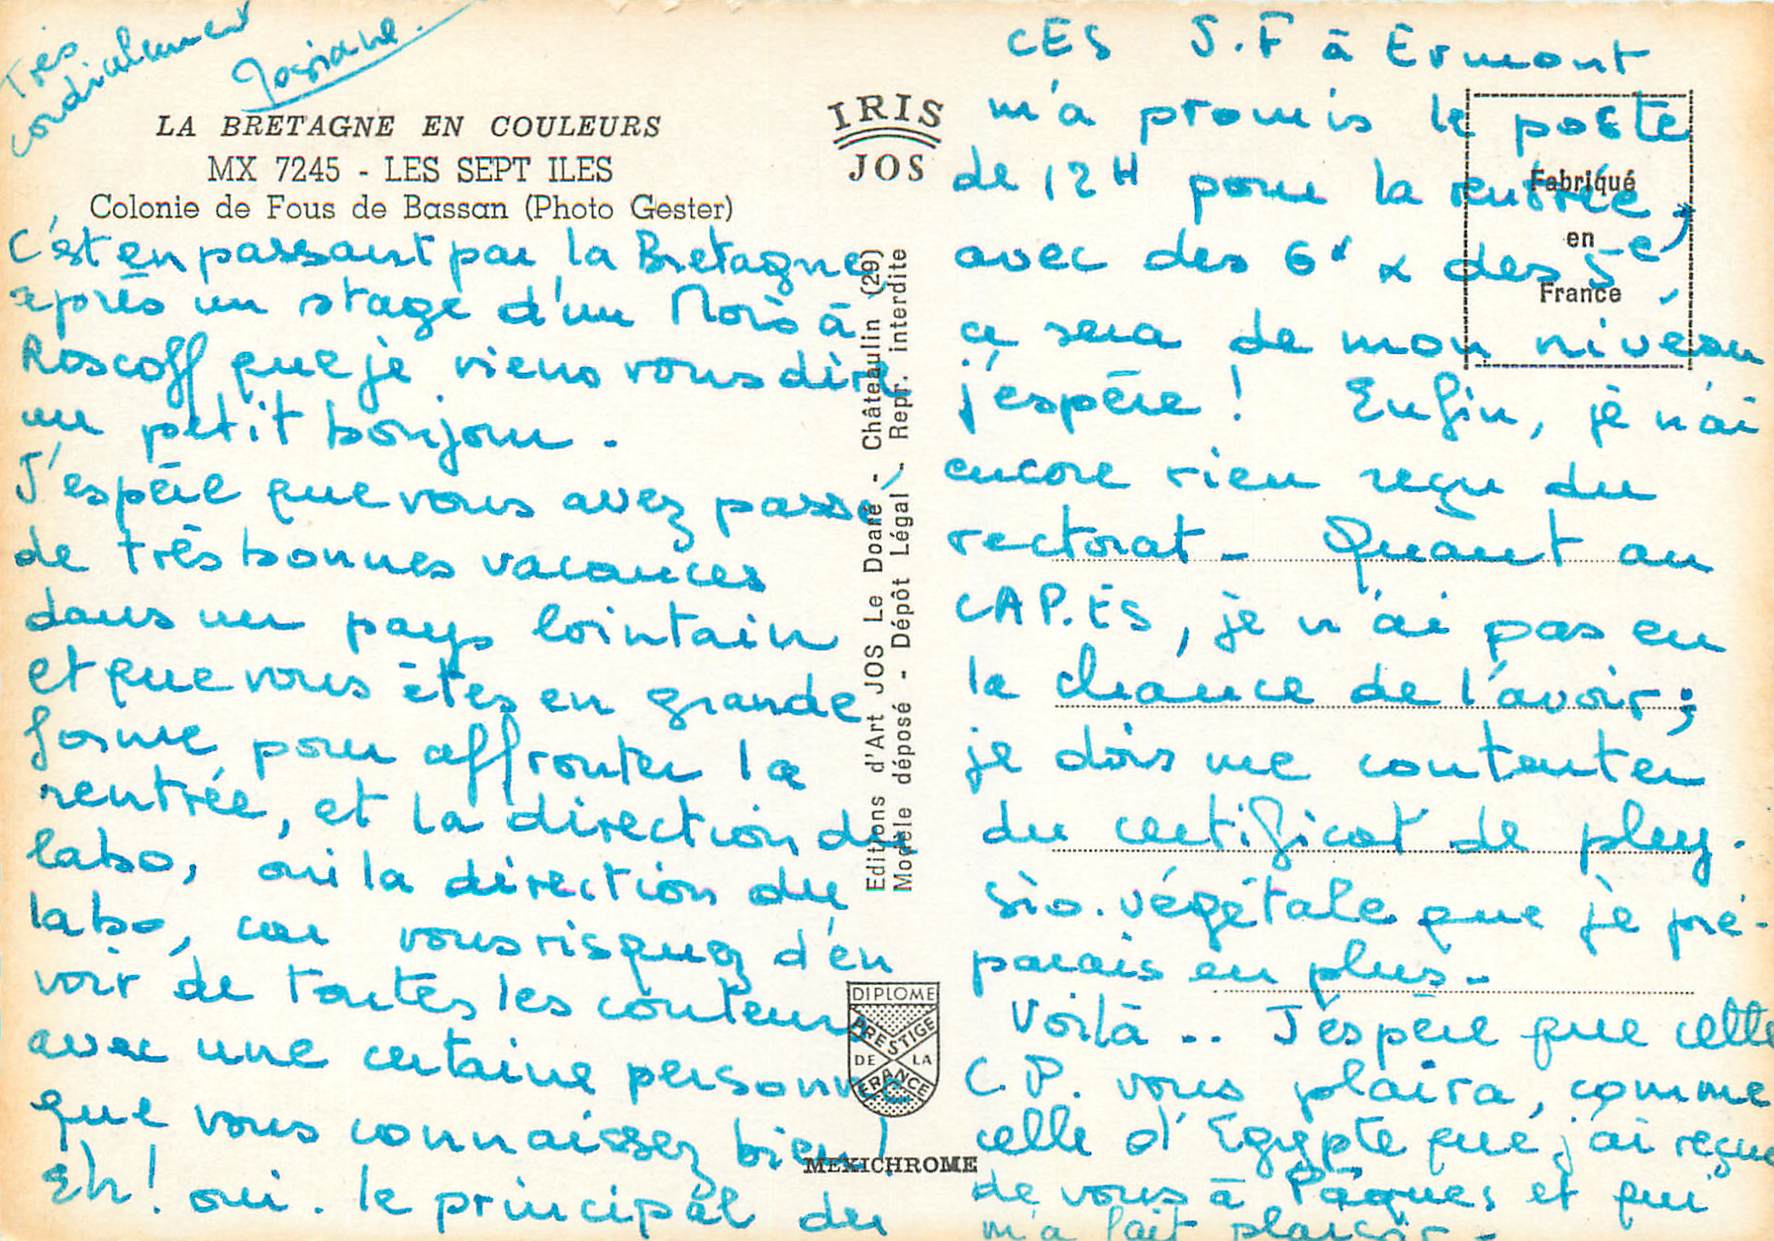 LA BRETAGNE EN COULEURS
MX 7245 - LES SEPT ILES
Colonie de Fous de Bassan (Photo Gester)
C'est en passant par la Bretagne
après un stage d'un Mois à
Roscoff que je viens vous dire
un petit bonjour.
J'espère que vous avez passé
de très bonnes vacances
dans un pays lointain
et que vous êtes en grande
forme pour affronter la
rentrée, et la direction du
labo, oui la direction du
labo, car vous risquez d'en
voir de toutes les couleurs
avec une certaine personne
que vous connaissez bien!
Eh! oui. le principal du
CES J.F à Ermont
m'a promis le poste
de 12H pour la rentrée,
avec des 6e & des 5e,
ça sera de mon niveau
j'espère! Enfin, je n'ai
encore rien reçu du
rectorat - Quant au
CAP.ES, je n'ai pas eu
la chance de l'avoir;
je dois me contenter
du certificat de phy-
sio. végétale que je pré-
parais en plus -
Voilà .. J'espère que cette
C.P. vous plaira, comme
celle d'Egypte que j'ai reçue
de vous à Pâques et qui
m'a fait plaisir -
Très
cordialement
Josiane.
IRIS
JOS
Fabriqué
en
France
Editions d'Art JOS Le Doaré - Châteaulin (29)
Modèle déposé - Dépôt Légal - Repr. interdite
DIPLOME
PRESTIGE
DE LA
FRANCE
MEXICHROME